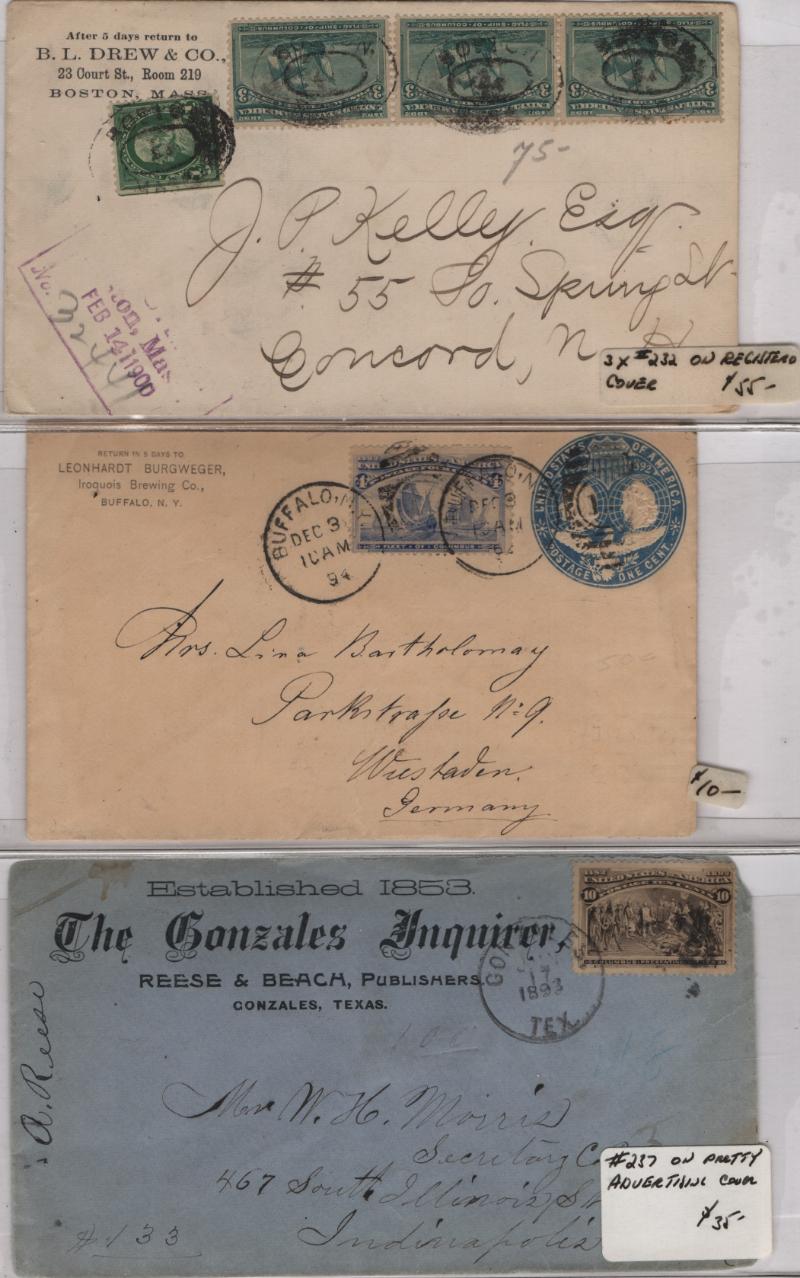 After 5 days return to
B. L. DREW & CO.,
23 Court St., Room 219
BOSTON, MASS.
75-
J. P. Kelly, Esq.
# 55 So. Spring St.
Concord, N. H.
No.
FEB 14 1900
3 x #232 ON REGISTERD
COVER $55-
RETURN IN 5 DAYS TO
LEONHARDT BURGWEGER,
Iroquois Brewing Co.,
BUFFALO, N. Y.
UNITED STATES OF AMERICA
FLEET OF COLUMBUS
BUFFALO, N.Y.
DEC 3
10 AM
94
UNITED STATES OF AMERICA.
POSTAGE ONE CENT.
Mrs. Lina Bartholomay
Parkstraße No 9.
Wiesbaden.
Germany.
$10-
Established 1853.
The Gonzales Inquirer,
REESE & BEACH, PUBLISHERS.
GONZALES, TEXAS.
UNITED STATES OF AMERICA
POSTAGE TEN CENTS
10 10
17
1893
TEX.
A. Reese
Mr W. H. Morris
Secretary
467 South Illinois St
Indianapolis
#133
#237 ON PRETTY
ADVERTISING COVER
$35-